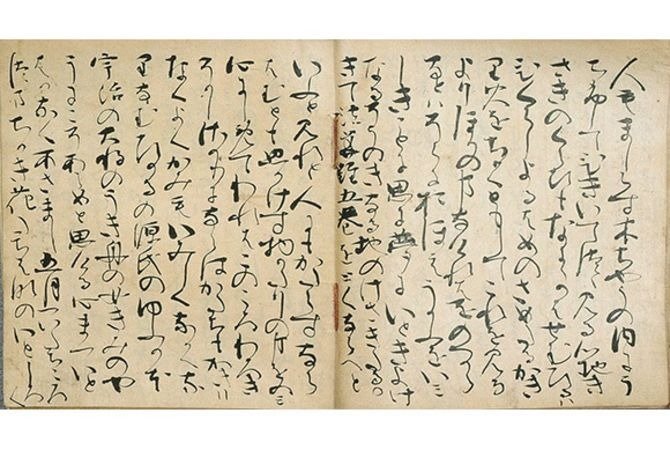 人もましらす木ちやうの内にう
ちふしてひきいてつゝ見る心地き
さきのくらひもなにゝかはせむひるは
ひくらしよるはめのさめたるかき
り火をちかくともしてこれを見る
よりほかの事なけれはをのつから
なとはそらにおほえうかふをいみ
しきことに思に夢にいときよけ
なるそうのきなる地のけさきたるか
きて法華経五巻をとくならへと
いふと見れと人にもかたらすなら
はむとも思かけす物かたりの事をのみ
心にしめてわれはこのころわろき
そかしさかりにならはかたちもかき
りなくよくかみもいみしくなかくな
りなむひかるの源氏のゆふかほ
宇治の大将のうき舟の女きみのや
うにこそあらめと思ける心まついと
はかなくあさまし五月ついたちころ
つまちかき花たちはなのいとしろく